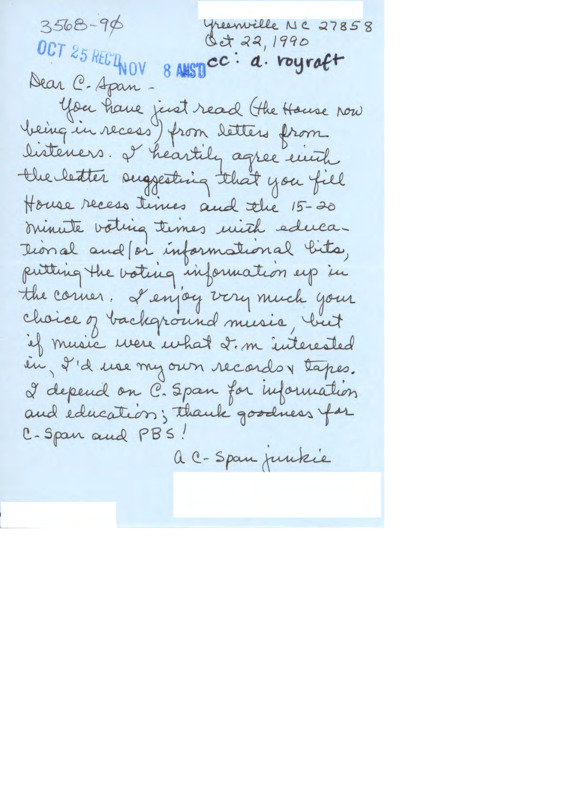 3568-90
Greenville NC 27858
Oct 22, 1990
OCT 25 REC'D
NOV 8 ANS'D
cc: a. roycraft
Dear C-Span -
You have just read (the House now
being in recess) from letters from
listeners. I heartily agree with
the letter suggesting that you fill
House recess times and the 15-20
minute voting times with educa-
tional and/or informational bits,
putting the voting information up in
the corner. I enjoy very much your
choice of background music, but
if music were what I'm interested
in, I'd use my own records & tapes.
I depend on C-Span for information
and education; thank goodness for
C-Span and PBS!
a C-Span junkie